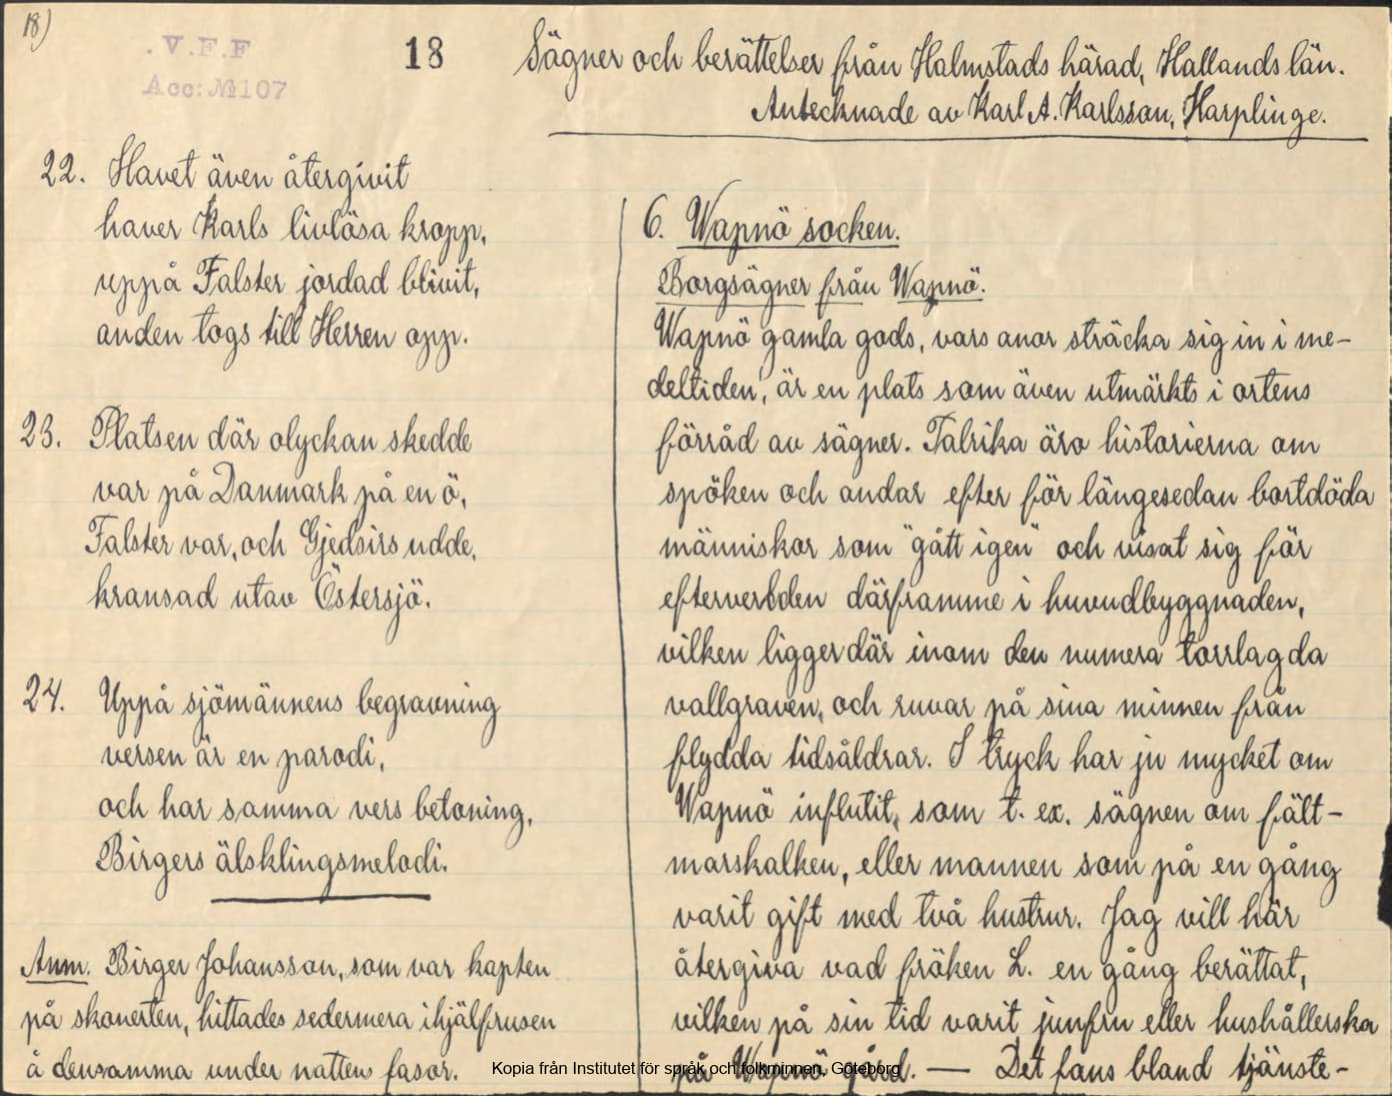 18)
. V.F.F
Acc: № 107
18
22. Havet även återgivit
haver Karls livlösa kropp,
uppå Falster jordad blivit,
anden togs till Herren opp.
23. Platsen där olyckan skedde
var på Danmark på en ö,
Falster var, och Gjedsirs udde,
kransad utav Östersjö.
24. Uppå sjömännens begravning
versen är en parodi,
och har samma vers betoning,
Birgers älsklingsmelodi.
Anm. Birger Johansson, som var kapten
på skonerten, hittades sedermera ihjälfrusen
å densamma under natten fasor.
Sägner och berättelser från Halmstads härad, Hallands län.
Antecknade av Karl A. Karlsson, Harplinge.
6. Wapnö socken.
Borgsägner från Wapnö.
Wapnö gamla gods, vars anor sträcka sig in i me-
deltiden, är en plats som även utmärkts i ortens
förråd av sägner. Talrika äro historierna om
spöken och andar efter för längesedan bortdöda
människor som "gått igen" och visat sig för
eftervärlden därframme i huvudbyggnaden,
vilken ligger där inom den numera torrlagda
vallgraven, och ruvar på sina minnen från
flydda tidsåldrar. I tryck har ju mycket om
Wapnö influtit, som t. ex. sägnen om fält-
marskalken, eller mannen som på en gång
varit gift med två hustrur. Jag vill här
återgiva vad fröken L. en gång berättat,
vilken på sin tid varit jungfru eller hushållerska
på Wapnö gård. — Det fans bland tjänste-
Kopia från Institutet för språk och folkminnen, Göteborg